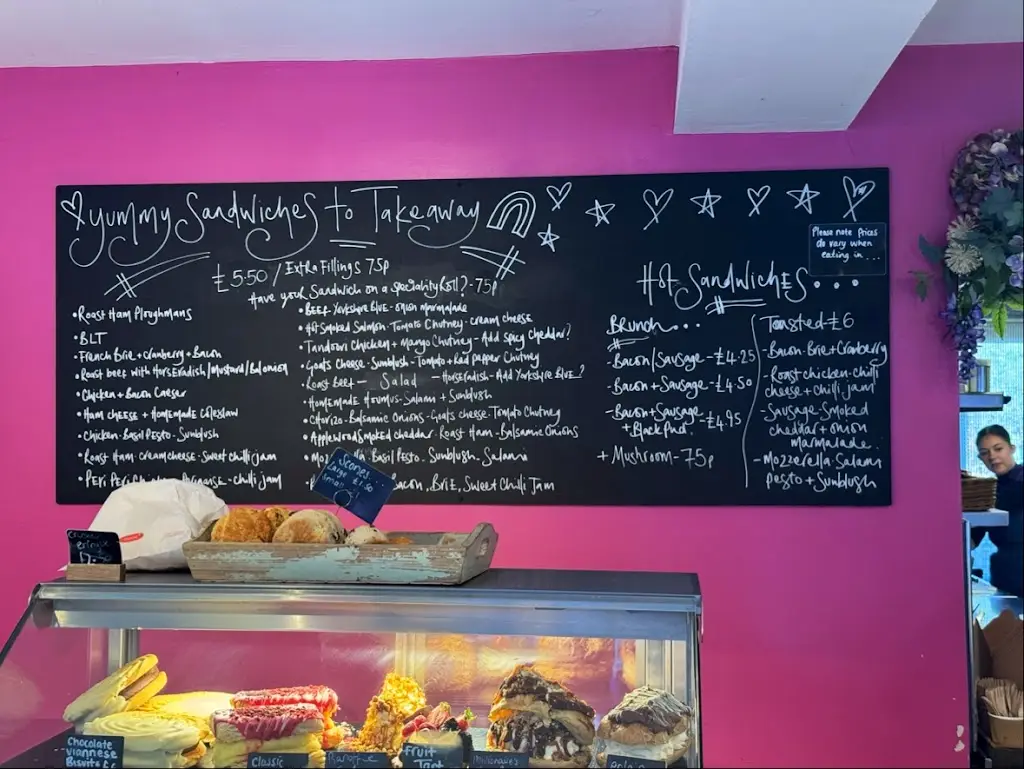 Yummy Sandwiches to Takeaway
£5.50 / Extra Fillings 75p
Have your Sandwich on a Speciality Roll? - 75p
• Roast Ham Ploughmans
• BLT
• French Brie + Cranberry + Bacon
• Roast beef with Horseradish/Mustard/Bal onion
• Chicken + Bacon Caesar
• Ham cheese + Homemade Coleslaw
• Chicken - Basil Pesto - Sunblush
• Roast Ham - cream cheese - Sweet chilli jam
• Peri Peri - chilli jam
• Beef - Yorkshire Blue - onion marmalade
• Hot Smoked Salmon - Tomato Chutney - cream cheese
• Tandoori Chicken + Mango Chutney - Add Spicy Cheddar?
• Goats Cheese - Sunblush - Tomato + Red Pepper Chutney
• Roast Beef - Salad - Horseradish - Add Yorkshire Blue?
• Homemade Houmus - Salami + Sunblush
• Chorizo - Balsamic Onions - Goats cheese - Tomato Chutney
• Applewood Smoked cheddar - Roast Ham - Balsamic Onions
Basil Pesto - Sunblush - Salami
Bacon, Brie, Sweet Chilli Jam
Please note Prices
do vary when
eating in...
Hot Sandwiches...
Brunch...
- Bacon/Sausage - £4.25
- Bacon + Sausage - £4.50
- Bacon + Sausage - £4.95
+ Black Pud.
+ Mushroom - 75p
Toasted - £6
- Bacon - Brie + Cranberry
- Roast chicken - chilli
cheese + chilli jam
- Sausage - Smoked
cheddar + onion
marmalade
- Mozzerella - Salami
pesto + Sunblush
Scones
Large £1.50
Chocolate
Viannese
Biscuits
Classic
Fruit
Tart